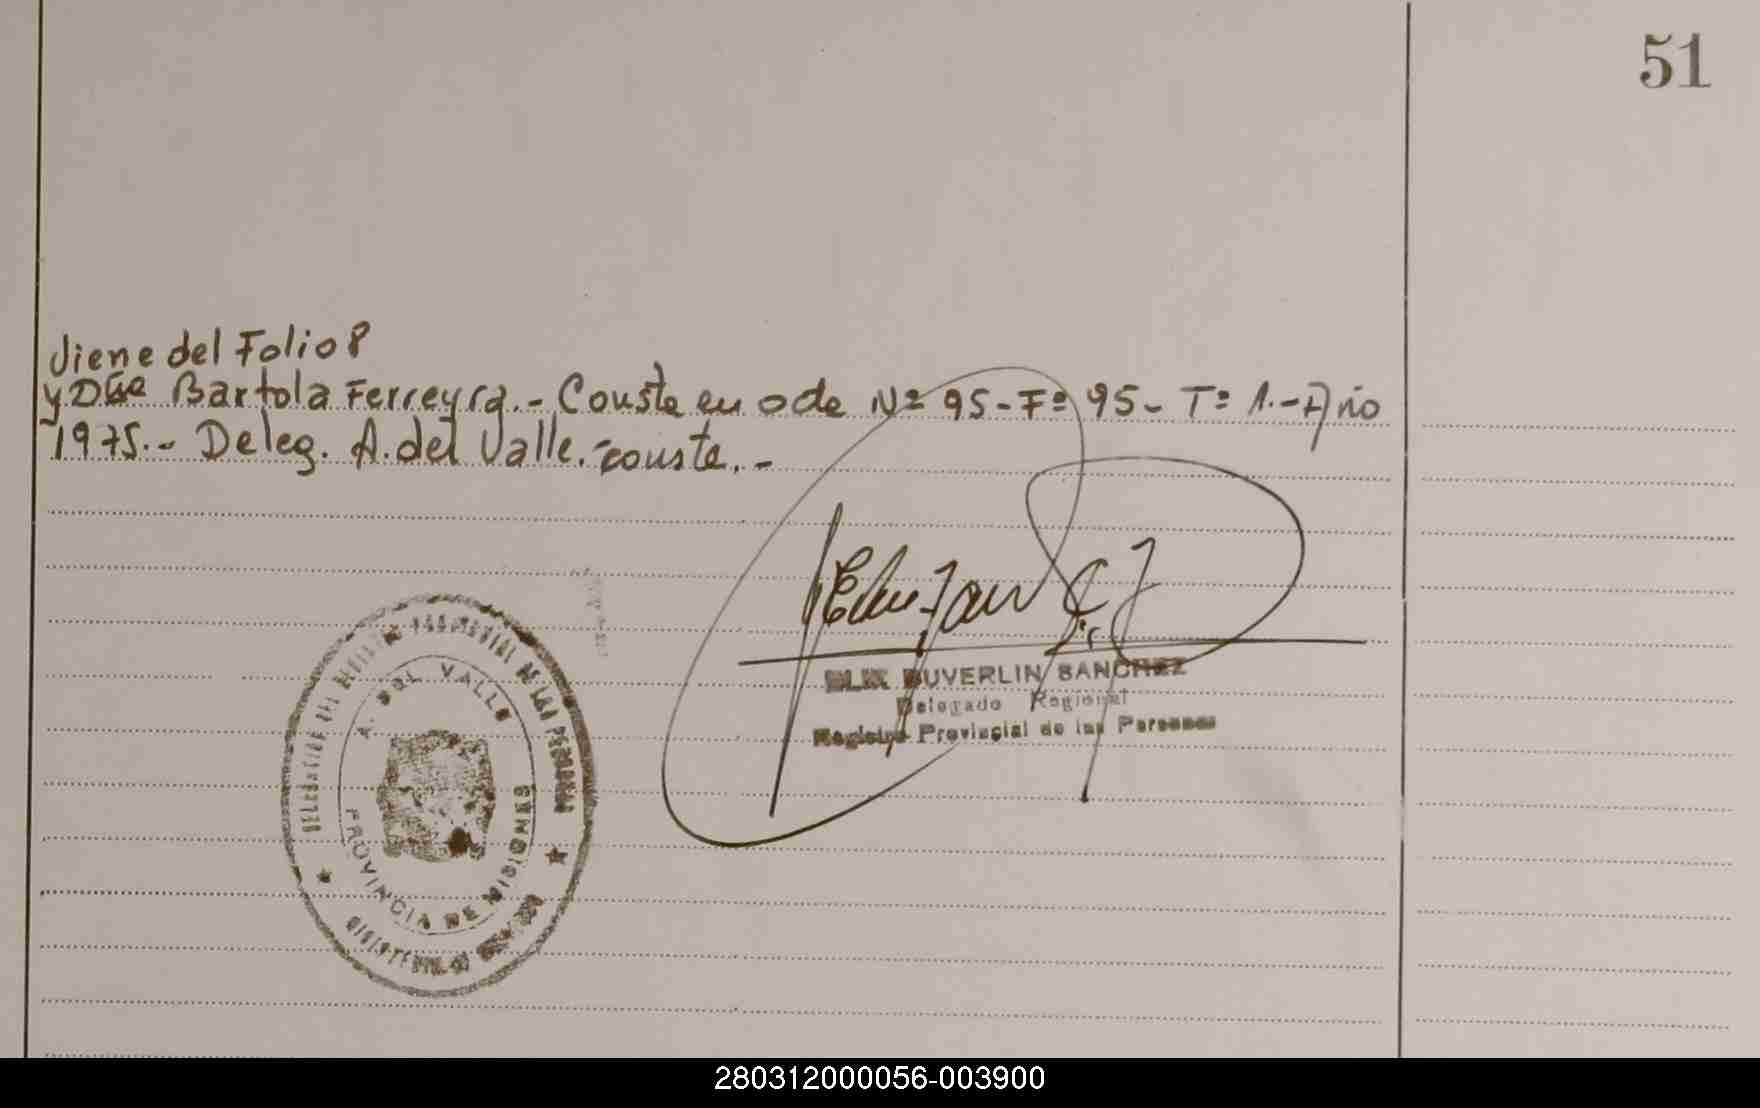 51
Viene del Folio 8
y Dña Bartola Ferreyra.- Conste en o de Nº 95-Fº 95- Tº 1.-Año
1975.- Deleg. A. del Valle.-conste.-
BUVERLIN SANCHEZ
Delegado Regional
Registro Provincial de las Personas
DELEGACION DEL REGISTRO PROVINCIAL DE LAS PERSONAS
A. DEL VALLE
PROVINCIA DE MISIONES
280312000056-003900